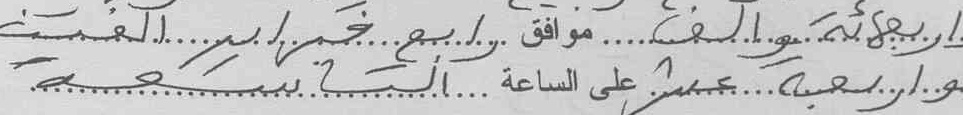 اربعمائة والف موافق رابع فبراير الفين
واربعة عشر على الساعة التاسعة